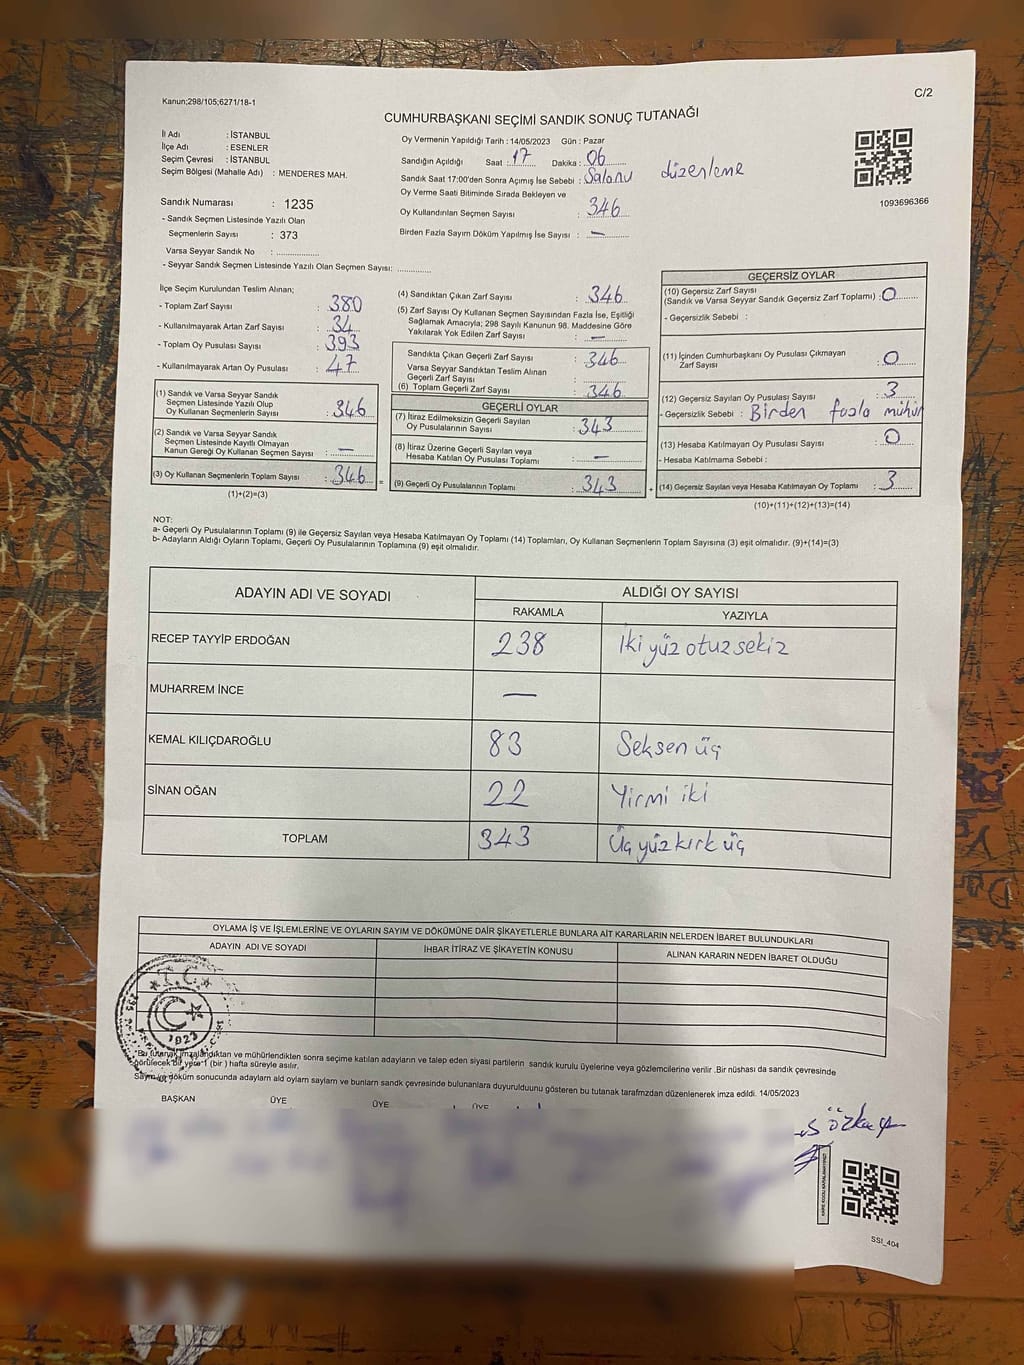 Kanun;298/105;6271/18-1
C/2
CUMHURBAŞKANI SEÇİMİ SANDIK SONUÇ TUTANAĞI
İl Adı : İSTANBUL
İlçe Adı : ESENLER
Seçim Çevresi : İSTANBUL
Seçim Bölgesi (Mahalle Adı) : MENDERES MAH.
Sandık Numarası : 1235
- Sandık Seçmen Listesinde Yazılı Olan
Seçmenlerin Sayısı : 373
Varsa Seyyar Sandık No :
- Seyyar Sandık Seçmen Listesinde Yazılı Olan Seçmen Sayısı:
Oy Vermenin Yapıldığı Tarih : 14/05/2023 Gün : Pazar
Sandığın Açıldığı Saat : 17 Dakika : 06
Sandık Saat 17:00'den Sonra Açımış İse Sebebi : Salonu düzenleme
Oy Verme Saati Bitiminde Sırada Bekleyen ve
Oy Kullandırılan Seçmen Sayısı : 346
Birden Fazla Sayım Döküm Yapılmış İse Sayısı : —
1093696366
İlçe Seçim Kurulundan Teslim Alınan;
- Toplam Zarf Sayısı : 380
- Kullanılmayarak Artan Zarf Sayısı : 34
- Toplam Oy Pusulası Sayısı : 393
- Kullanılmayarak Artan Oy Pusulası : 47
(1) Sandık ve Varsa Seyyar Sandık
Seçmen Listesinde Yazılı Olup
Oy Kullanan Seçmenlerin Sayısı : 346
(2) Sandık ve Varsa Seyyar Sandık
Seçmen Listesinde Kayıtlı Olmayan
Kanun Gereği Oy Kullanan Seçmen Sayısı : —
(3) Oy Kullanan Seçmenlerin Toplam Sayısı : 346 =
(1)+(2)=(3)
(4) Sandıktan Çıkan Zarf Sayısı : 346
(5) Zarf Sayısı Oy Kullanan Seçmen Sayısından Fazla İse, Eşitliği
Sağlamak Amacıyla; 298 Sayılı Kanunun 98. Maddesine Göre
Yakılarak Yok Edilen Zarf Sayısı : —
Sandıkta Çıkan Geçerli Zarf Sayısı : 346
Varsa Seyyar Sandıktan Teslim Alınan
Geçerli Zarf Sayısı :
(6) Toplam Geçerli Zarf Sayısı : 346
GEÇERLİ OYLAR
(7) İtiraz Edilmeksizin Geçerli Sayılan
Oy Pusulalarının Sayısı : 343
(8) İtiraz Üzerine Geçerli Sayılan veya
Hesaba Katılan Oy Pusulası Toplamı : —
(9) Geçerli Oy Pusulalarının Toplamı : 343 +
GEÇERSİZ OYLAR
(10) Geçersiz Zarf Sayısı
(Sandık ve Varsa Seyyar Sandık Geçersiz Zarf Toplamı) : 0
- Geçersizlik Sebebi :
(11) İçinden Cumhurbaşkanı Oy Pusulası Çıkmayan
Zarf Sayısı : 0
(12) Geçersiz Sayılan Oy Pusulası Sayısı : 3
- Geçersizlik Sebebi : Birden fazla mühür
(13) Hesaba Katılmayan Oy Pusulası Sayısı : 0
- Hesaba Katılmama Sebebi :
(14) Geçersiz Sayılan veya Hesaba Katılmayan Oy Toplamı : 3
(10)+(11)+(12)+(13)=(14)
NOT:
a- Geçerli Oy Pusulalarının Toplamı (9) ile Geçersiz Sayılan veya Hesaba Katılmayan Oy Toplamı (14) Toplamları, Oy Kullanan Seçmenlerin Toplam Sayısına (3) eşit olmalıdır. (9)+(14)=(3)
b- Adayların Aldığı Oyların Toplamı, Geçerli Oy Pusulalarının Toplamına (9) eşit olmalıdır.
ADAYIN ADI VE SOYADI
ALDIĞI OY SAYISI
RAKAMLA YAZIYLA
RECEP TAYYİP ERDOĞAN 238 İki yüz otuz sekiz
MUHARREM İNCE —
KEMAL KILIÇDAROĞLU 83 Seksen üç
SİNAN OĞAN 22 Yirmi iki
TOPLAM 343 Üç yüz kırk üç
OYLAMA İŞ VE İŞLEMLERİNE VE OYLARIN SAYIM VE DÖKÜMÜNE DAİR ŞİKAYETLERLE BUNLARA AİT KARARLARIN NELERDEN İBARET BULUNDUKLARI
ADAYIN ADI VE SOYADI İHBAR İTİRAZ VE ŞİKAYETİN KONUSU ALINAN KARARIN NEDEN İBARET OLDUĞU
T.C.
1923
"Bu tutanak imzalandıktan ve mühürlendikten sonra seçime katılan adayların ve talep eden siyasi partilerin sandık kurulu üyelerine veya gözlemcilerine verilir .Bir nüshası da sandık çevresinde
görülecek bir yere 1 (bir ) hafta süreyle asılır.
Sayım ve döküm sonucunda adayların ald oyların sayların ve bunların sandk çevresinde bulunanlara duyurulduunu gösteren bu tutanak tarafmzdan düzenlenerek imza edildi. 14/05/2023
BAŞKAN ÜYE ÜYE ÜYE
SSI_404